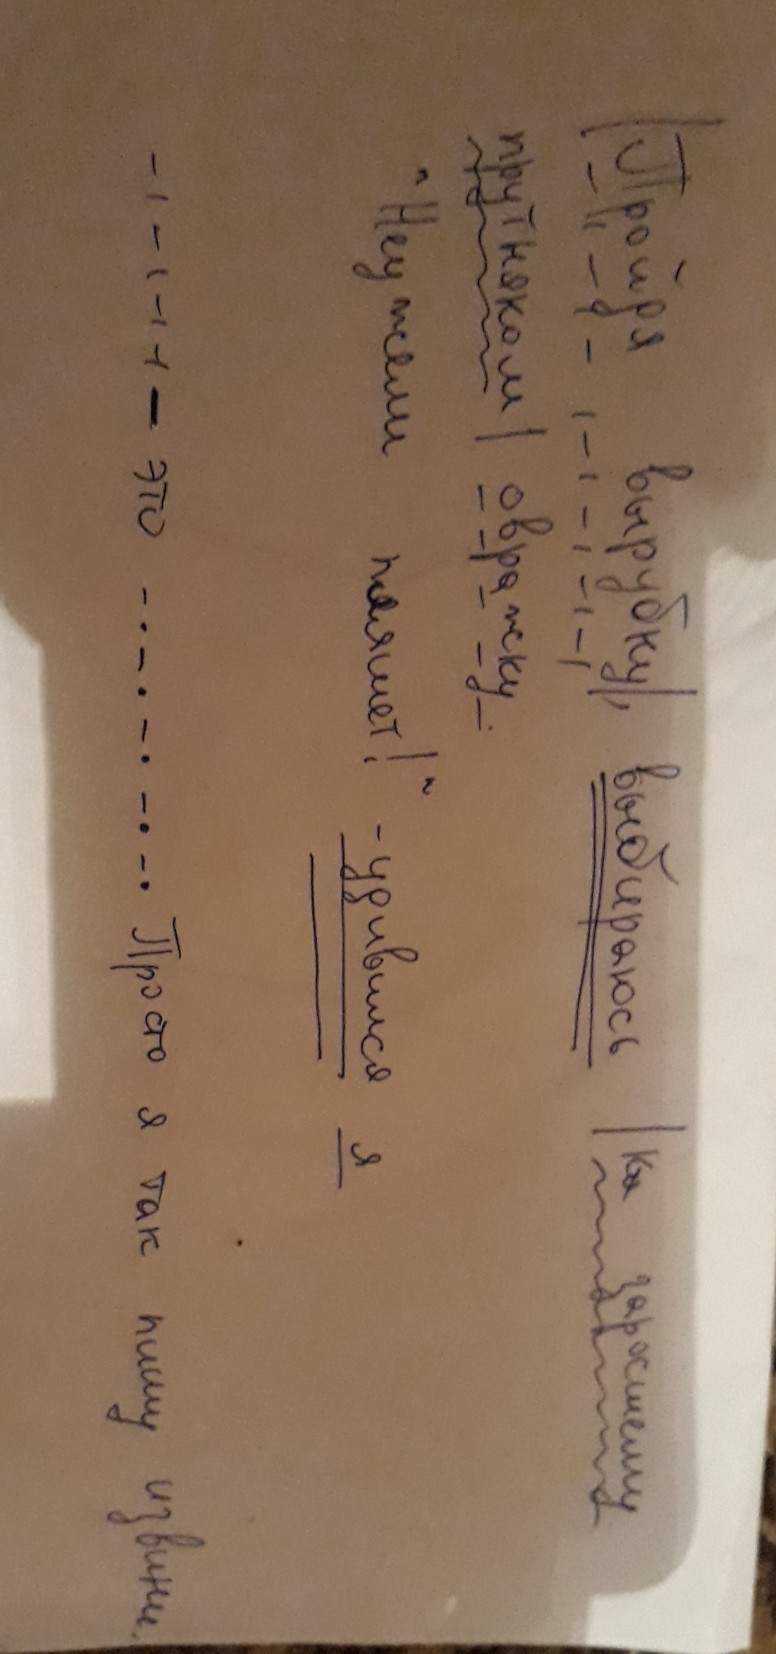 |Пройдя вырубку|, выбираюсь |ка заросшему
прутняком| овражку.
"Неужели пляшет!" - удивился я
-ı-ı-ı-ı- это -.-.-.-.-. Просто я так пишу извини.